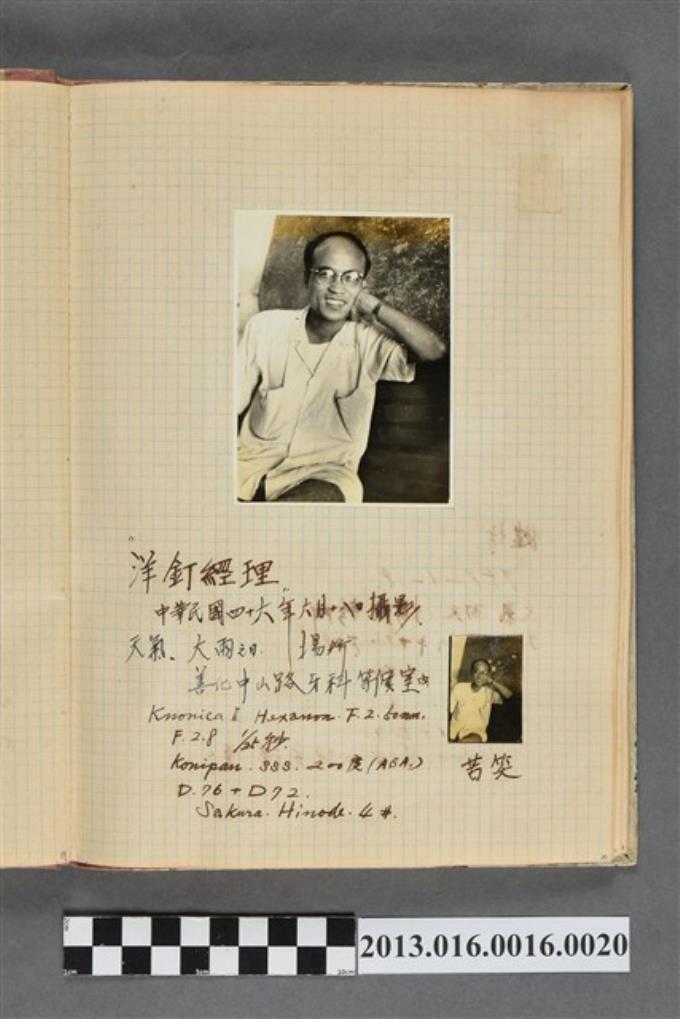 "洋釘經理"
中華民國四十六年六月十八日攝影
天氣、大雨之日 場所
善化中山路牙科等候室内
Knonica II Hexanon. F.2. 50mm.
F.2.8 1/25秒.
Konipan. SSS. 200度(ASA.)
D.76 + D72.
Sakura. Hinode. 4#.
苦笑
2013.016.0016.0020